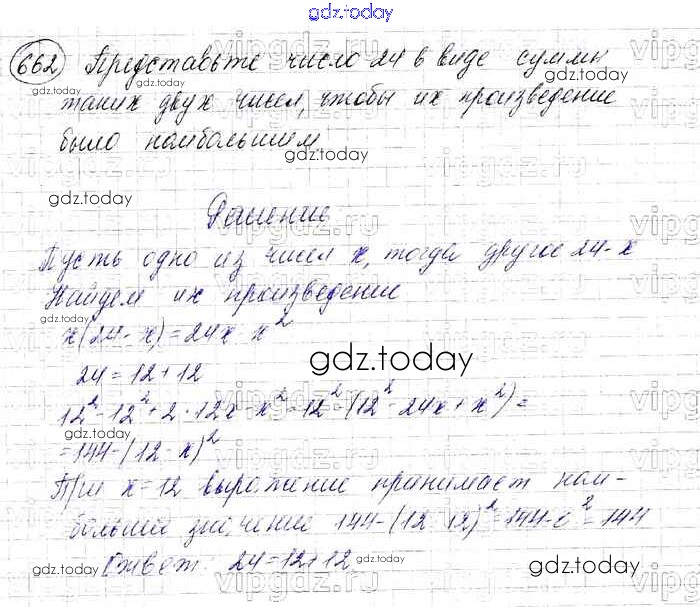 gdz.today
662 Представьте число 24 в виде суммы
таких двух чисел, чтобы их произведение
было наибольшим.
Решение
Пусть одно из чисел x, тогда другое 24-x
Найдем их произведение
x(24-x)=24x-x²
24=12+12
12²-12²+2·12x-x²=12²-(12²-24x+x²)=
=144-(12-x)²
При x=12 выражение принимает наи-
большее значение 144-(12-12)²=144-0²=144
Ответ: 24=12+12